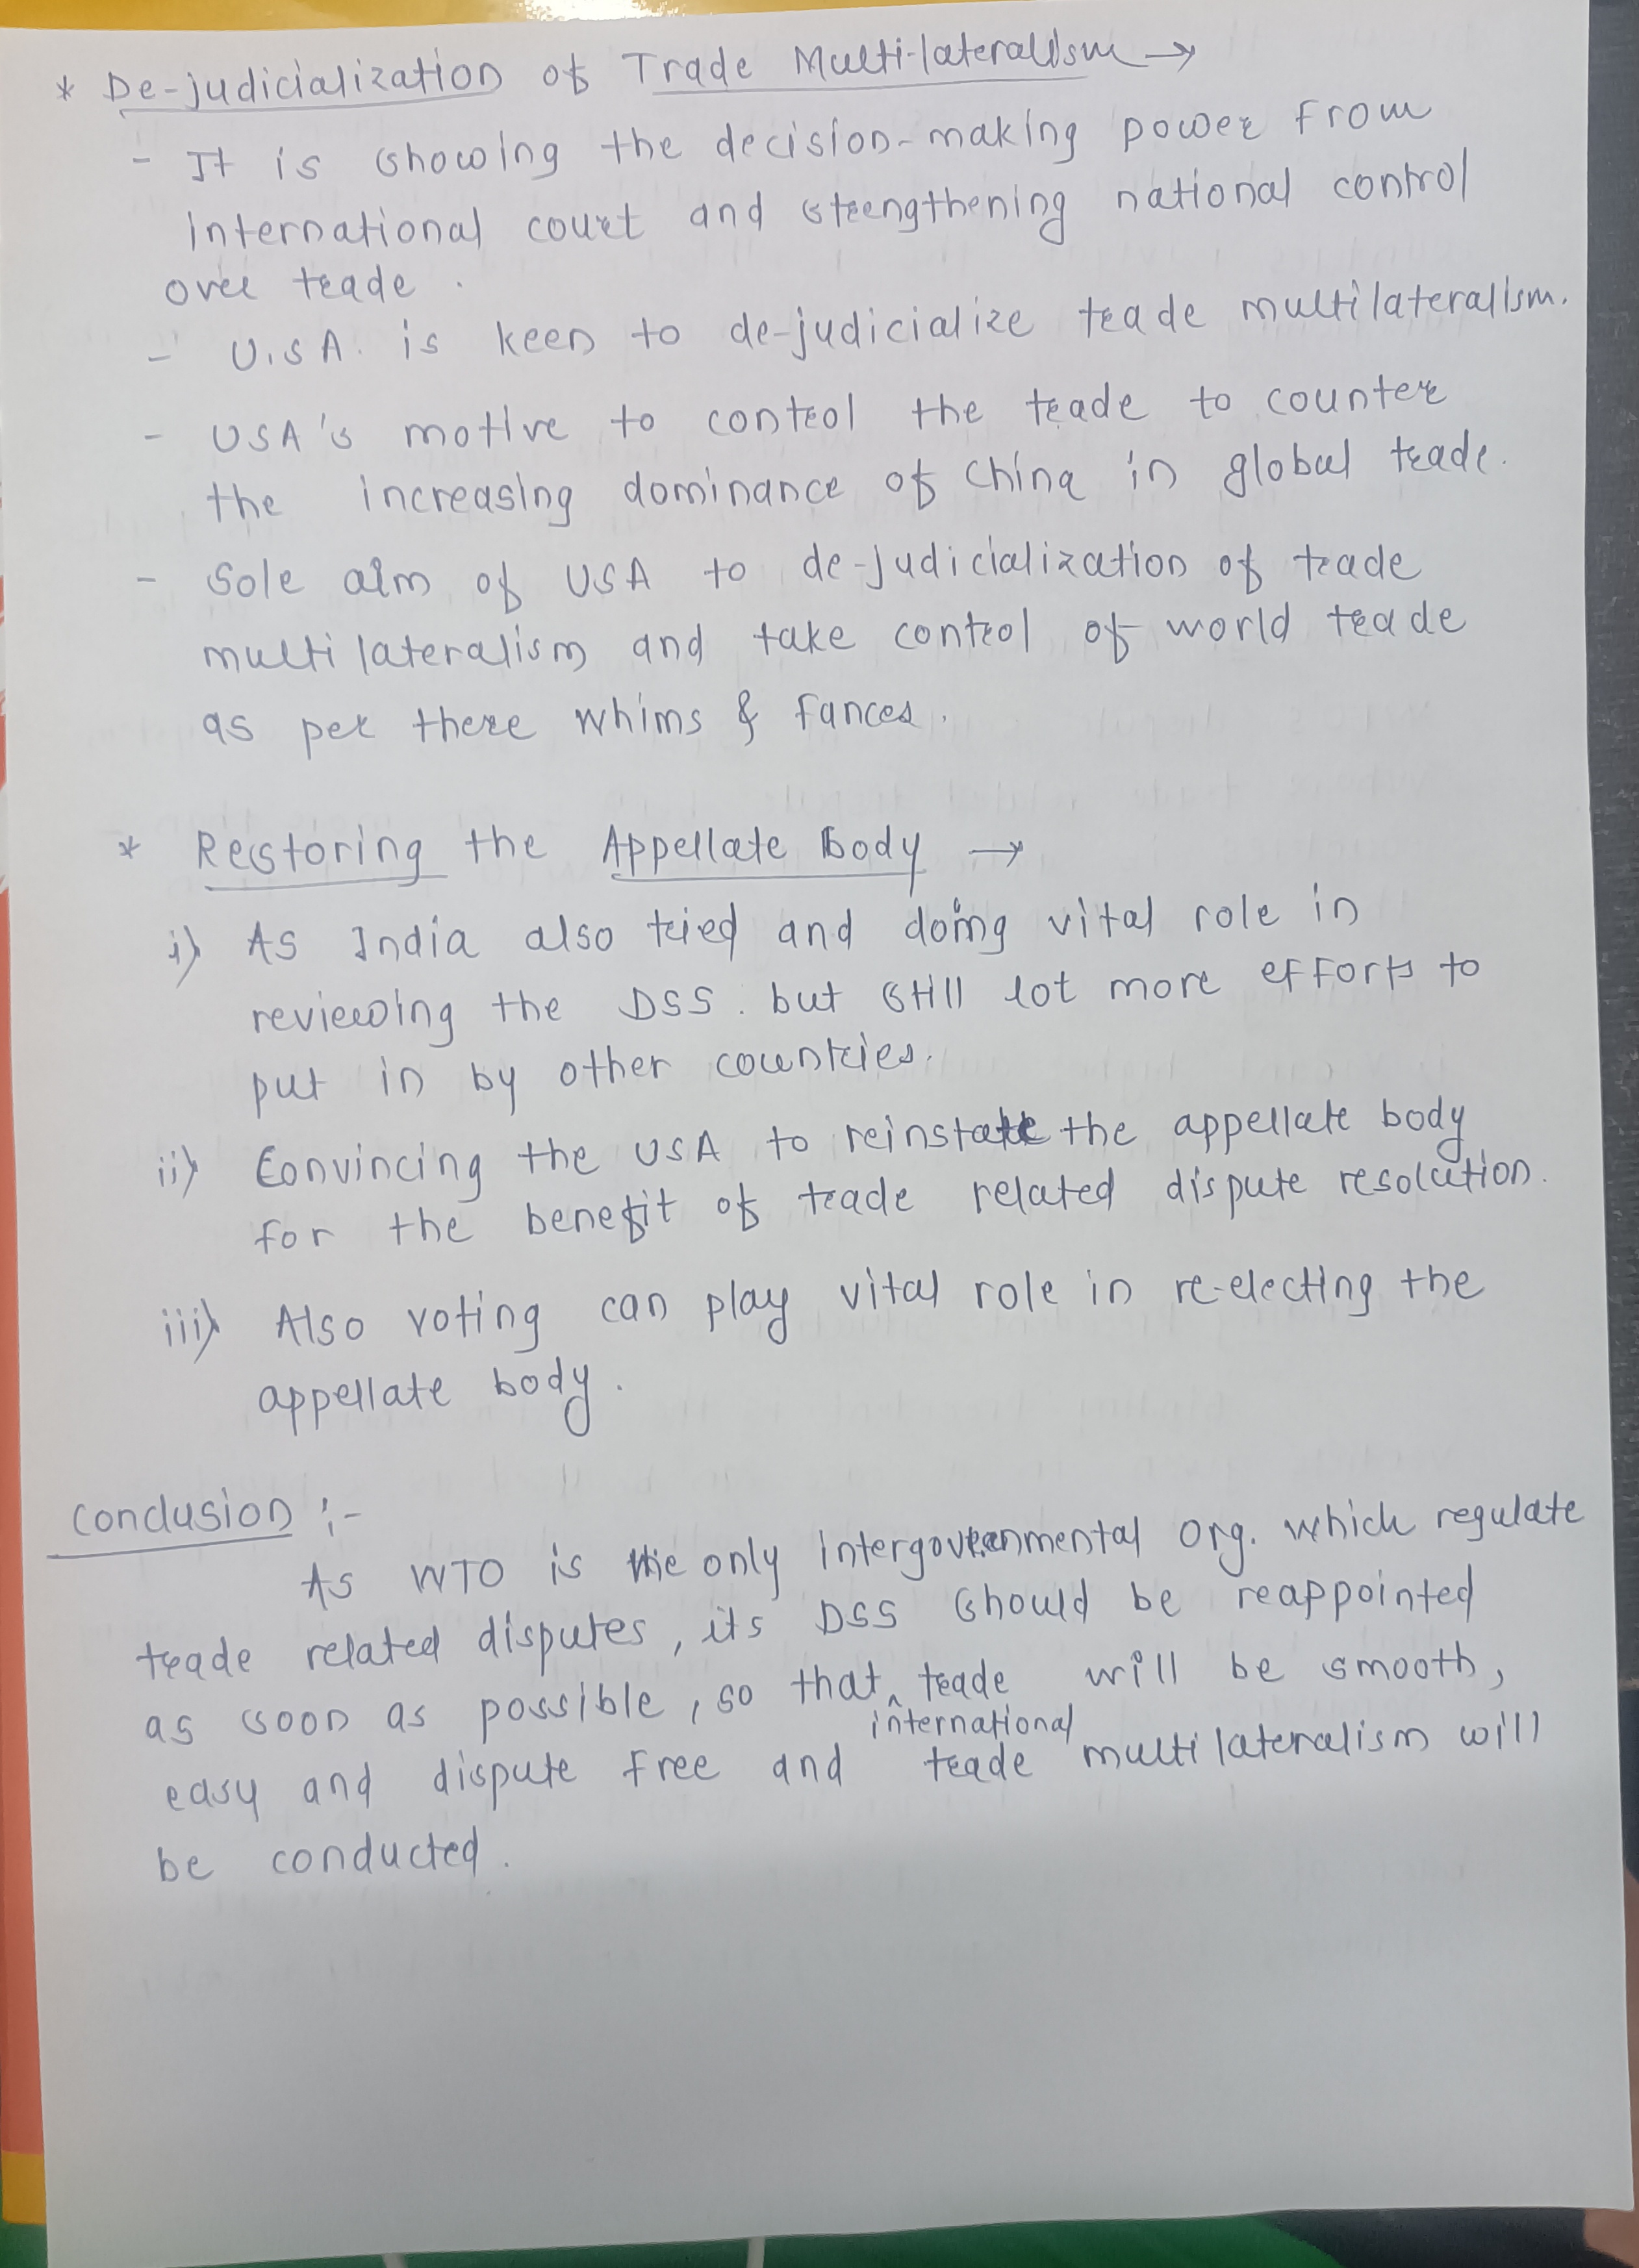 * De-judicialization of Trade Multi-lateralism →
- It is showing the decision-making power from
international court and strengthening national control
over trade.
- U.S.A. is keen to de-judicialize trade multilateralism.
- USA's motive to control the trade to counter
the increasing dominance of China in global trade.
- Sole aim of USA to de-judicialization of trade
multilateralism and take control of world trade
as per there whims & fances.
* Restoring the Appellate Body →
i) As India also tried and doing vital role in
reviewing the DSS. but still lot more efforts to
put in by other countries.
ii) Convincing the USA to reinstate the appellate body
for the benefit of trade related dispute resolution.
iii) Also voting can play vital role in re-electing the
appellate body.
Conclusion :-
As WTO is the only intergovernmental Org. which regulate
trade related disputes, its DSS should be reappointed
as soon as possible, so that ^ trade will be smooth,
international
easy and dispute free and trade multilateralism will
be conducted.